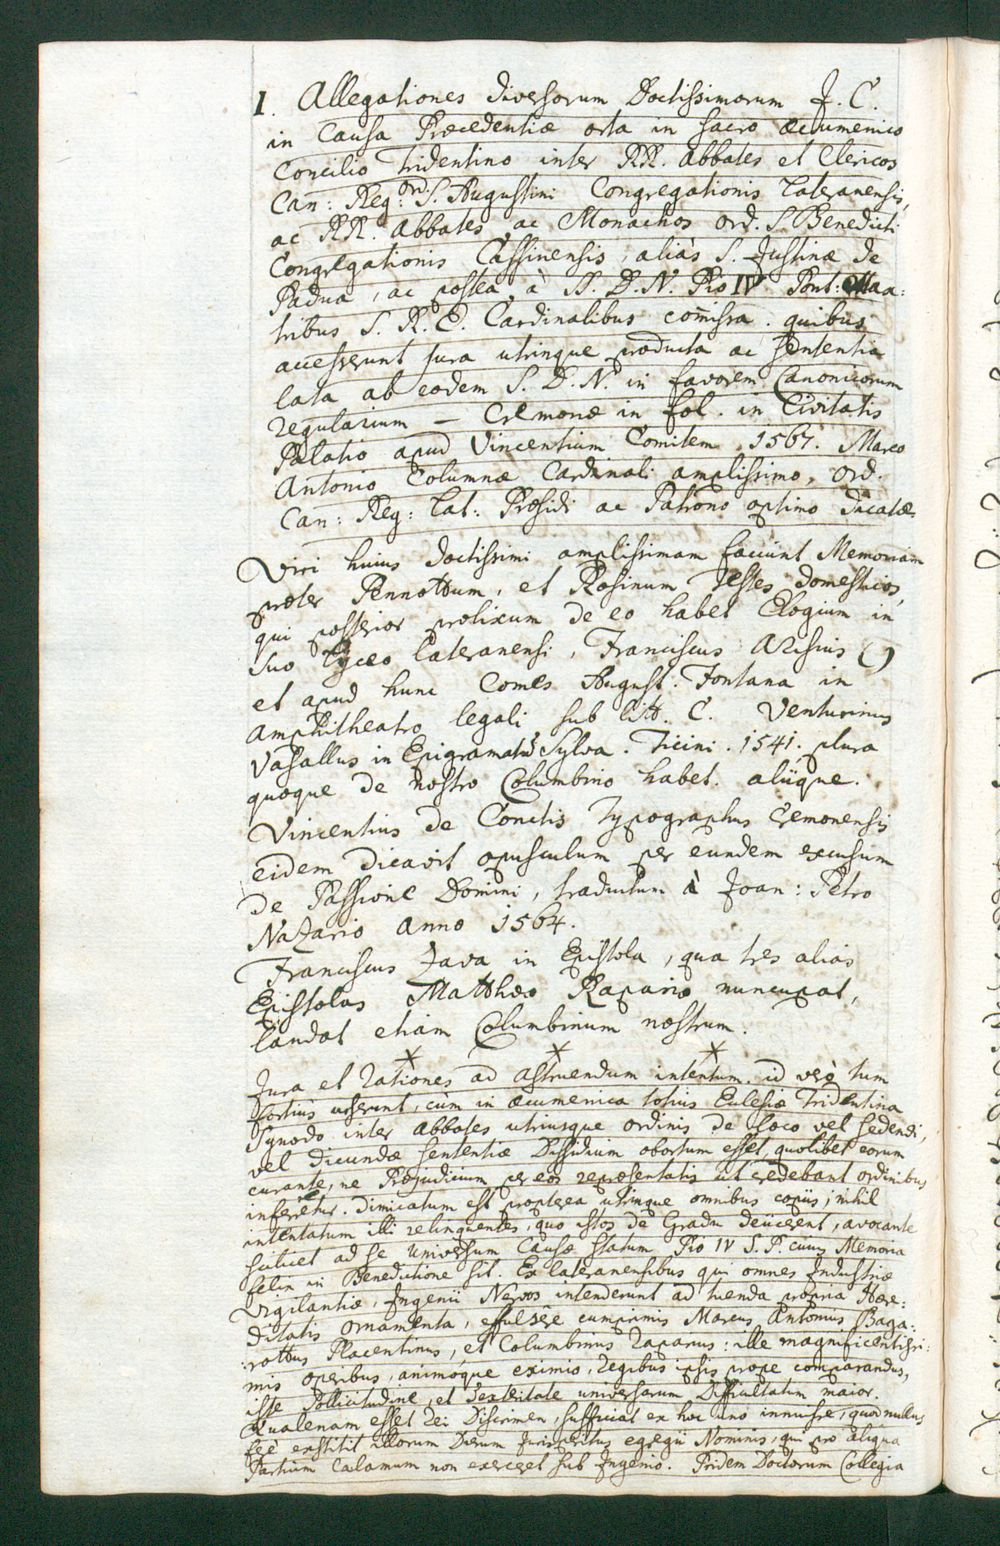 1. Allegationes diversorum Doctissimorum J. C.
in Causa Præcedentiæ orta in sacro Œcumenico
Concilio Tridentino inter RR. Abbates et Clericos
Can: Reg: Ord. S. Augustini Congregationis Lateranensis,
ac RR. Abbates ac Monachos Ord. S. Benedicti
Congregationis Cassinensis, aliàs S. Justinæ de
Padua, ac postea à SS. D. N. Pio IV Pont:
tribus S. R. E. Cardinalibus comissa. quibus
accesserunt jura utrinque producta ac sententia
lata ab eodem S. D. N. in favorem Canonicorum
regularium — Cremonæ in fol. in Civitatis
Palatio apud Vincentium Comitem 1567. Marco
Antonio Columnæ Cardinali amplissimo, Ord.
Can: Reg: Lat: Præsidi ac Patrono optimo dicatæ.
Viri huius doctissimi amplissimam faciunt Memoriam
præter Pennottum, et Rosinum Testes domesticos,
qui posterior prolixum de eo habet Elogium in
suo Lyceo Lateranensi, Franciscus Arisius ()
et apud hunc Comes August. Fontana in
Amphitheatro legali sub litt. C. Venturinus
Vasallus in Epigramatū Sylva. Ticini. 1541. plura
quoque de nostro Columbino habet. aliique.
Vincentius de Conctis Typographus Cremonensis
eidem dicavit opusculum per eundem excusum
de Passione Domini, traductum à Joan: Petro
Nazario Anno 1564.
Franciscus Zava in Epistola, qua tres alias
Epistolas Matthæo Rapario nuncupat,
laudat etiam Columbinum nostrum.
* * *
Jura et rationes ad astruendum intentum. id verò tum
fortius usserunt, cùm in œcumenica totius Ecclesiæ Tridentina
Synodo inter Abbates utriusque ordinis de loco vel sedendi,
vel dicundæ sententiæ Dissidium obortum esset, quolibet eorum
curante, ne Præjudicium per eos repræsentatis ut credebant ordinibus
inferretur. Dimicatum est propterea utrinque omnibus copiis, nihil
intentatum illi relinquentes, quo istos de Gradu deiicerent, avocante
scilicet ad se Universum Causæ statum Pio IV S. P. cuius Memoria
felix in Benedictione sit. Ex lateranensibus qui omnes Industriæ
Vigilantiæ, Ingenii Nervos intenderunt ad tuenda propria Hære:
ditatis ornamenta, effulsere cumprimis Marcus Antonius Baga:
rottus Placentinus, et Columbinus Raparius: ille magnificentissi:
mis operibus, animoque eximio, Regibus ipsis prope comparandus,
iste Sollicitudine, et dexteritate universarum Difficultatum maior.
Qualenam esset rei Discrimen, sufficiat ex hoc uno innuisse, quod nullus
ferè exstitit illorum Dierum Jurisperitus egregii Nominis, qui pro aliqua
Partium Calamum non exerceret sub Ingenio. Pridem Doctorum Collegia